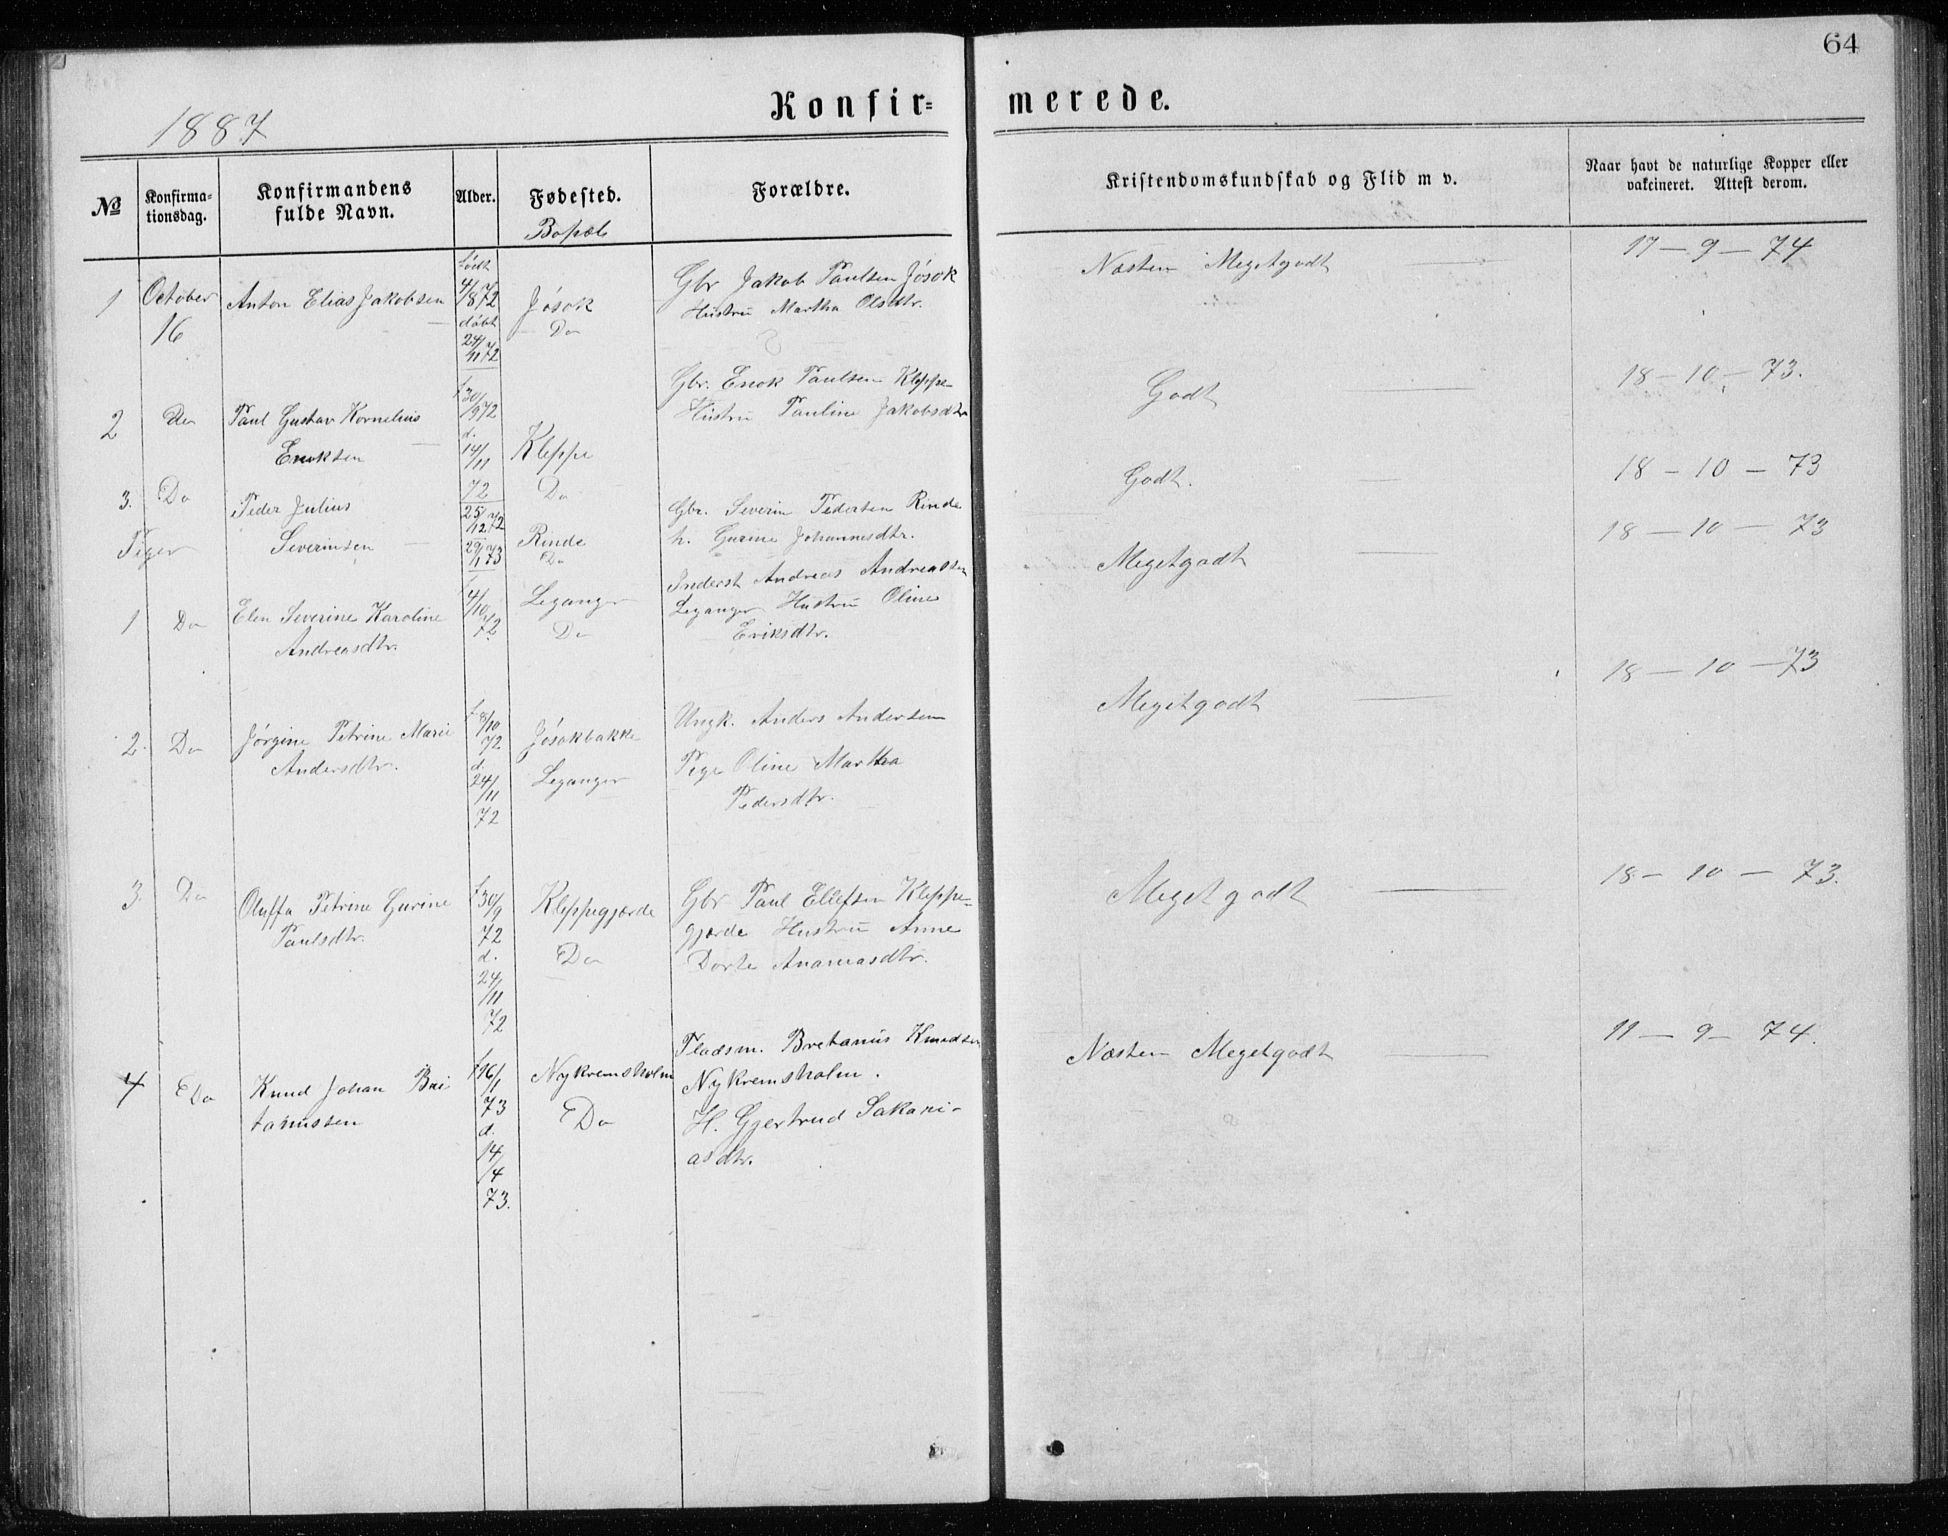 64
Konfir= merede.
1887
№
Konfirma-
tionsdag.
Konfirmandens
fulde Navn.
Alder.
Fødested.
Bopæl
Forældre.
Kristendomskundskab og Flid m v.
Naar havt de naturlige Kopper eller
vakcineret. Attest derom.
1
October
16
Anton Elias Jakobsen
født
4/8 72
døbt
24/11 72
Jøsok
Do
Gbr Jakob Paulsen Jøsok
Hustru Martha Olsdtr.
Næsten Megetgodt
17 - 9 - 74
2
Do
Paul Gustav Kornelius
Enoksen
f 30/9 72
d.
14/11
72
Kleppe
Do
Gbr. Enok Paulsen Kleppe
Hustru Pauline Jakobsdtr
Godt
18 - 10 - 73.
3.
Do
Peder Julius
Severinsen
25/12 72
29/1 73
Rinde
Do
Gbr. Severin Pedersen Rinde
h. Gurine Johannesdtr.
Godt.
18 - 10 - 73
Piger
1
Do
Elen Severine Karoline
Andreasdtr.
f 4/10
72
Leganger
Do
Inderst Andreas Andreassen
Leganger Hustru Oline
Eriksdtr.
Megetgodt
18 - 10 - 73
2.
Do
Jørgine Petrine Marie
Andersdtr.
f 8/10
72
d.
24/11
72
Jøsokbakke
Leganger
Ungk. Anders Andersen
Pige Oline Martha
Pedersdtr.
Megetgodt
18 - 10 - 73
3.
Do
Oluffa Petrine Gurine
Paulsdtr.
f 30/9
72
d.
24/11
72
Kleppegjærde
Do
Gbr Paul Ellefsen Kleppe=
gjærde Hustru Anne
Dorte Ananiasdtr.
Megetgodt
18 - 10 - 73.
4
Do
Knud Johan Bri
tanussen
f 16/1
73
d.
14/4
73.
Nykremsholm
Do
Pladsm. Bretanus Knudsen
Nykremsholm.
H. Gjertrud Sakari-
asdtr.
Næsten Megetgodt
11 - 9 - 74.